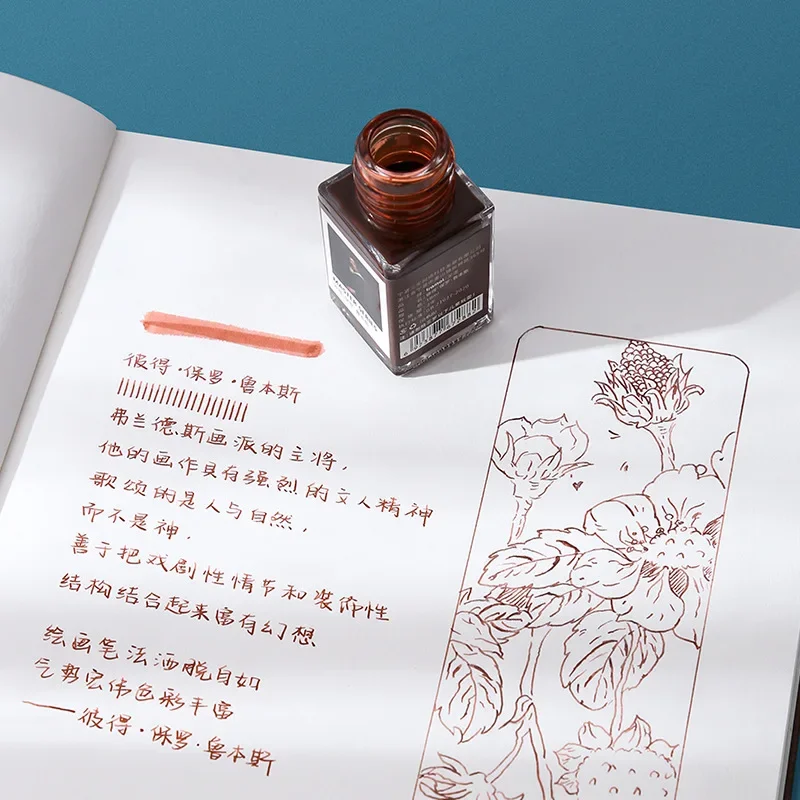 彼得·保罗·鲁本斯
弗兰德斯画派的主将，
他的画作具有强烈的文人精神
歌颂的是人与自然，
而不是神，
善于把戏剧性情节和装饰性
结构结合起来富有幻想
绘画笔法洒脱自如
气势宏伟色彩丰富
——彼得·保罗·鲁本斯